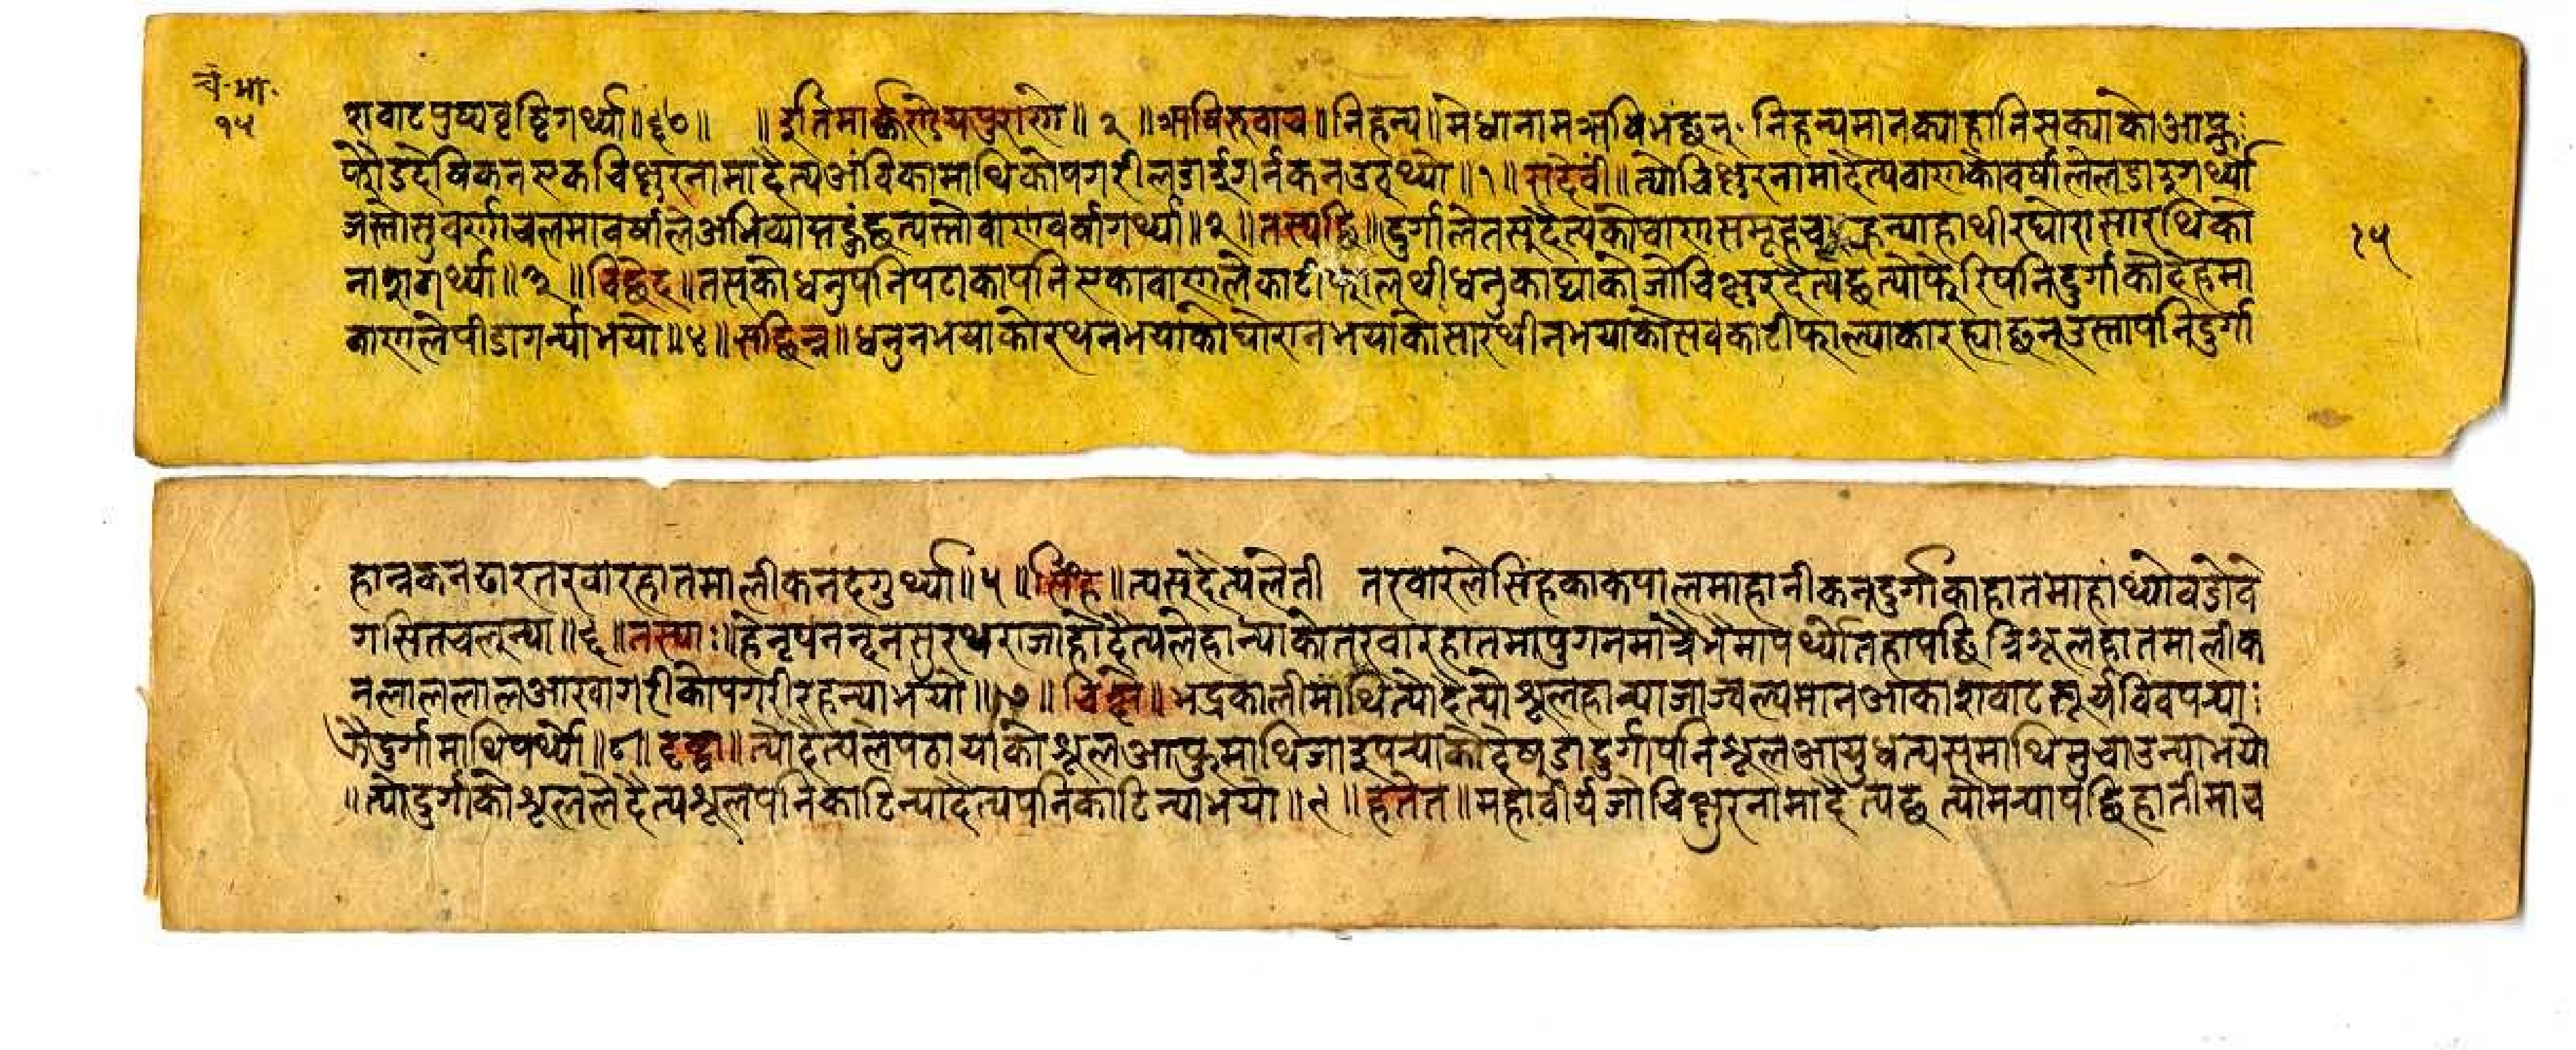 चं॰भा॰
१५
शवाटपुष्पवृष्टिगर्थ्या॥६०॥ ॥इतिमार्क्कण्डेयपुराणे॥२॥ऋषिरुवाच॥निहन्य॥मेधानामऋषिभंछन्॰निहन्यमानक्याहानिसक्याकोआफ्नु
फौजदेषिकनएकचिक्षुरनामादैत्यअंविकामाथिकोपगरीलडाञीगर्नकनउठ्थ्यो॥१॥सदेवीं॥त्योचिक्षुरनामादैत्यवाणकोवर्षालेलडाञीगर्थ्यो
जस्तोसुवर्णाचलमावर्षालेअभिव्याप्तहुंछत्यस्तोवाणवर्षागर्थ्या॥२॥तस्यछि॥दुर्गालेतसदैत्यकोवाणसमूहच हन्याहाथीरघोरासारथिको
नाशगर्थ्या॥३॥विछेद॥तस्कोधनुपनिपटाकापनिएकावाणलेकाटीफालुथीधनुकाट्याकोजोचिक्षुरदैत्यछत्योफेरिपनिदुर्गाकोदेहमा
वाणलेपीडागर्न्याभयो॥४॥सछिन्न॥धनुनभयाकोरथनभयाकोघोरानभयाकोसारथीनभयाकोसवकाटीफाल्याकारह्याछन्उस्तापनिदुर्गा
१५
हान्नकनढारतरवारहातमालीकनदगुर्थ्या॥५॥सिंह॥त्यस्दैत्यलेती नरवारलेसिंहकाकपालमाहानीकनदुर्गाकाहातमाहांथ्योवडोवे
गसितचलून्या॥६॥तस्याः॥हेनृपनन्दनसुरथराजाहोदैत्यलेहान्याकोतरवारहातमापुगनमात्रैभैमापर्थ्योतहापछित्रिशूलहातमालीक
नलाललालआखागरीकोपगरीरहन्याभयो॥७॥चिक्षेप॥भद्रकालीमाथित्योदैत्योशूलहान्याजाज्वल्यमानआकाशवाटसूर्यविवपर्‍या
झैदुर्गामाथिपर्थ्यो॥८॥दृष्ट्वा॥त्योदैत्यलेपठायाकोशूलआफुमाथिजाइपर्‍याकोदेषदादुर्गापनिशूलआयुधत्यस्माथिमुचाउन्याभयो
॥त्योदुर्गाकोशूललेदैत्यशूलपनिकाटिन्यादैत्यपनिकाटिन्याभयो॥९॥हतेत॥महावीर्यजोचिक्षुरनामादैत्यछत्योमर्‍यापछिहातीमाच